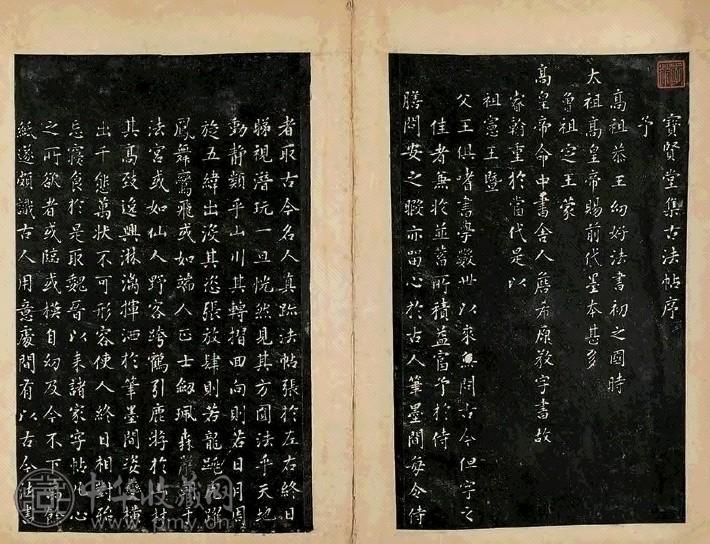 寶賢堂集古法帖序
予
高祖恭王幼好法書初之國時
太祖高皇帝賜前代墨本甚多
曾祖定王蒙
高皇帝命中書舍人詹希原教字書故
家翰重於當代是以
祖憲王暨
父王俱嗜書學數世以來無問古今但字之
佳者無於並蓄所積益富予於侍
膳問安之暇亦留心於古人筆墨間每令侍
者取古今名人真跡法帖張於左右終日
睇視潛玩一旦恍然見其方圓法乎天地
動靜類乎山川其轉摺回向則若日月周
於五緯出沒其恣張放肆則若龍跳虎躍
鳳舞鸞飛或如端人正士劔珮森嚴
法宮或如仙人野客跨鶴引鹿將於
其高致逸興淋漓揮洒於筆墨間姿變橫
出千態萬狀不可形容使人終日相對殆
忘寢食於是取魏晉以來諸家字帖
之所欲者或臨或模自幼及今不下
紙遂頗識古人用意處間有以古今法書
中华收藏网
www.pmv.cn